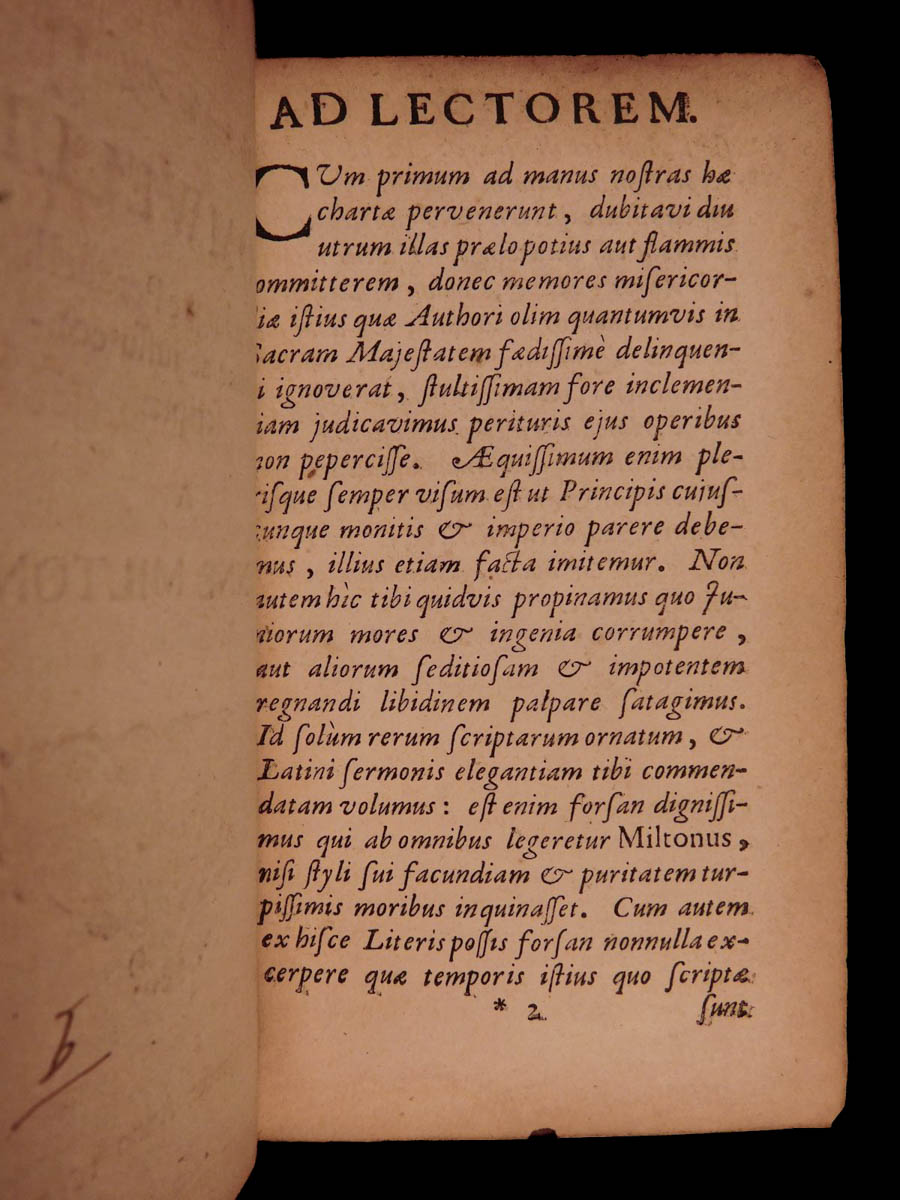 AD LECTOREM.
CUm primum ad manus noſtras hæ
chartæ pervenerunt, dubitavi diu
utrum illas prælo potius aut flammis
ommitterem, donec memores miſericor-
iæ iſtius quæ Authori olim quantumvis in
Sacram Majeſtatem fædiſſimè delinquen-
i ignoverat, ſtultiſſimam fore inclemen-
iam judicavimus perituris ejus operibus
non peperciſſe. Æquiſſimum enim ple-
riſque ſemper viſum eſt ut Principis cujuſ-
cunque monitis & imperio parere debe-
mus, illius etiam facta imitemur. Non
autem hìc tibi quidvis propinamus quo Ju-
niorum mores & ingenia corrumpere,
aut aliorum ſeditioſam & impotentem
regnandi libidinem palpare ſatagimus.
Id ſolùm rerum ſcriptarum ornatum, &
Latini ſermonis elegantiam tibi commen-
datam volumus: eſt enim forſan digniſſi-
mus qui ab omnibus legeretur Miltonus,
niſi ſtyli ſui facundiam & puritatem tur-
piſſimis moribus inquinaſſet. Cum autem
ex hiſce Literis poſſis forſan nonnulla ex-
cerpere quæ temporis iſtius quo ſcriptæ
* 2 ſunt